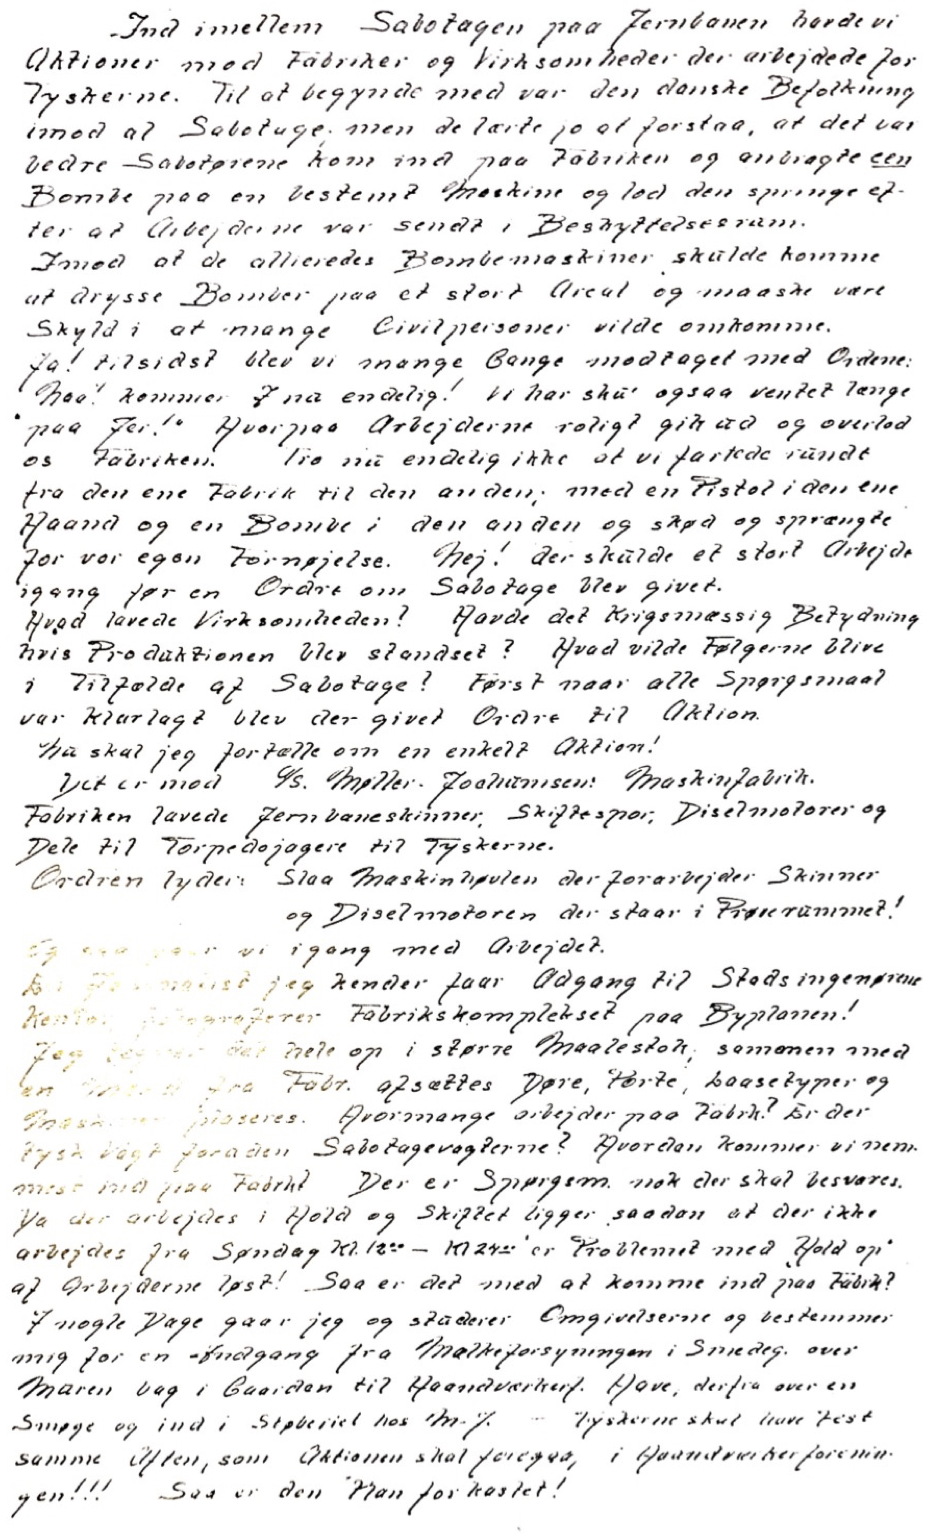 Ind imellem Sabotagen paa Jernbanen havde vi
Aktioner mod Fabriker og Virksomheder der arbejdede for
Tyskerne. Til at begynde med var den danske Befolkning
imod al Sabotage, men de lærte jo at forstaa, at det var
bedre Sabotørene kom ind paa Fabriken og anbragte een
Bombe paa en bestemt Maskine og lod den springe ef-
ter at Arbejderne var sendt i Beskyttelsesrum.
Imod at de allieredes Bombemaskiner skulde komme
at drysse Bomber paa et stort Areal og maaske være
Skyld i at mange Civilpersoner vilde omkomme.
Ja! tilsidst blev vi mange Gange modtaget med Ordene:
"Naa! kommer I nu endelig! Vi har sku' ogsaa ventet længe
paa Jer!" Hvorpaa Arbejderne roligt gik ud og overlod
os Fabriken. Tro nu endelig ikke at vi fartede rundt
fra den ene Fabrik til den anden, med en Pistol i den ene
Haand og en Bombe i den anden og skød og sprængte
for vor egen Fornøjelse. Nej! der skulde et stort Arbejde
igang før en Ordre om Sabotage blev givet.
Hvad lavede Virksomheden? Havde det Krigsmæssig Betydning
hvis Produktionen blev standset? Hvad vilde Følgerne blive
i Tilfælde af Sabotage? Først naar alle Spørgsmaal
var klarlagt blev der givet Ordre til Aktion.
Nu skal jeg fortælle om en enkelt Aktion!
Det er mod A/S. Møller. Jochumsens Maskinfabrik.
Fabriken lavede Jernbaneskinner, Skiftespor, Diselmotorer og
Dele til Torpedojagere til Tyskerne.
Ordren lyder: Slaa Maskinhøvlen der forarbejder Skinner
og Diselmotoren der staar i Prøverummet!
Og saa gaar vi igang med Arbejdet.
jeg kender faar Adgang til Stadsingenørens
Kontor, fotograferer Fabrikskomplekset paa Byplanen!
Jeg tegner det hele op i større Maalestok, sammen med
en Mand fra Fabr. afsættes Døre, Porte, Laasetyper og
Maskiner plaseres. Hvormange arbejder paa Fabrk? Er der
tysk Vagt foruden Sabotagevagterne? Hvordan kommer vi nem-
mest ind paa Fabrk? Der er Spørgsm. nok der skal besvares.
Da der arbejdes i Hold og Skiftet ligger saadan at der ikke
arbejdes fra Søndag Kl. 12⁰⁰ – Kl 24⁰⁰ er Problemet med "Hold op"
af Arbejderne løst! Saa er det med at komme ind paa Fabrk?
I nogle Dage gaar jeg og studerer Omgivelserne og bestemmer
mig for en Indgang fra Mælkeforsyningen i Smedeg. over
Muren bag i Gaarden til Haandværkerf. Have, derfra over en
Smøge og ind i Støberiet hos M.J. – Tyskerne skal have Fest
samme Aften, som Aktionen skal foregaa, i Haandværkerforenin-
gen!!! Saa er den Plan forkastet!